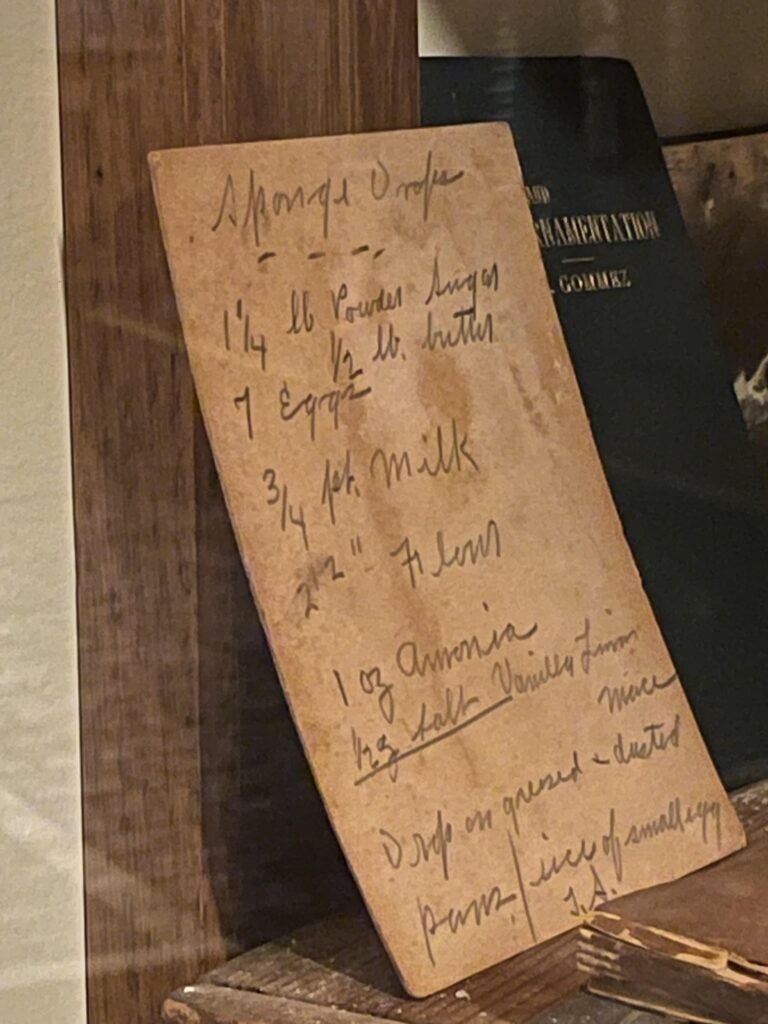 Sponge Drops
1 1/4 lb Powder Sugar
1/2 lb. butter
7 Eggs
3/4 pt. Milk
2 1/2 " Flour
1 oz Amonia
1/2 oz Salt Vanilla
Mace
Drop on greased & dusted
pans. / size of small egg
RNAMENTATION
GOMMEZ